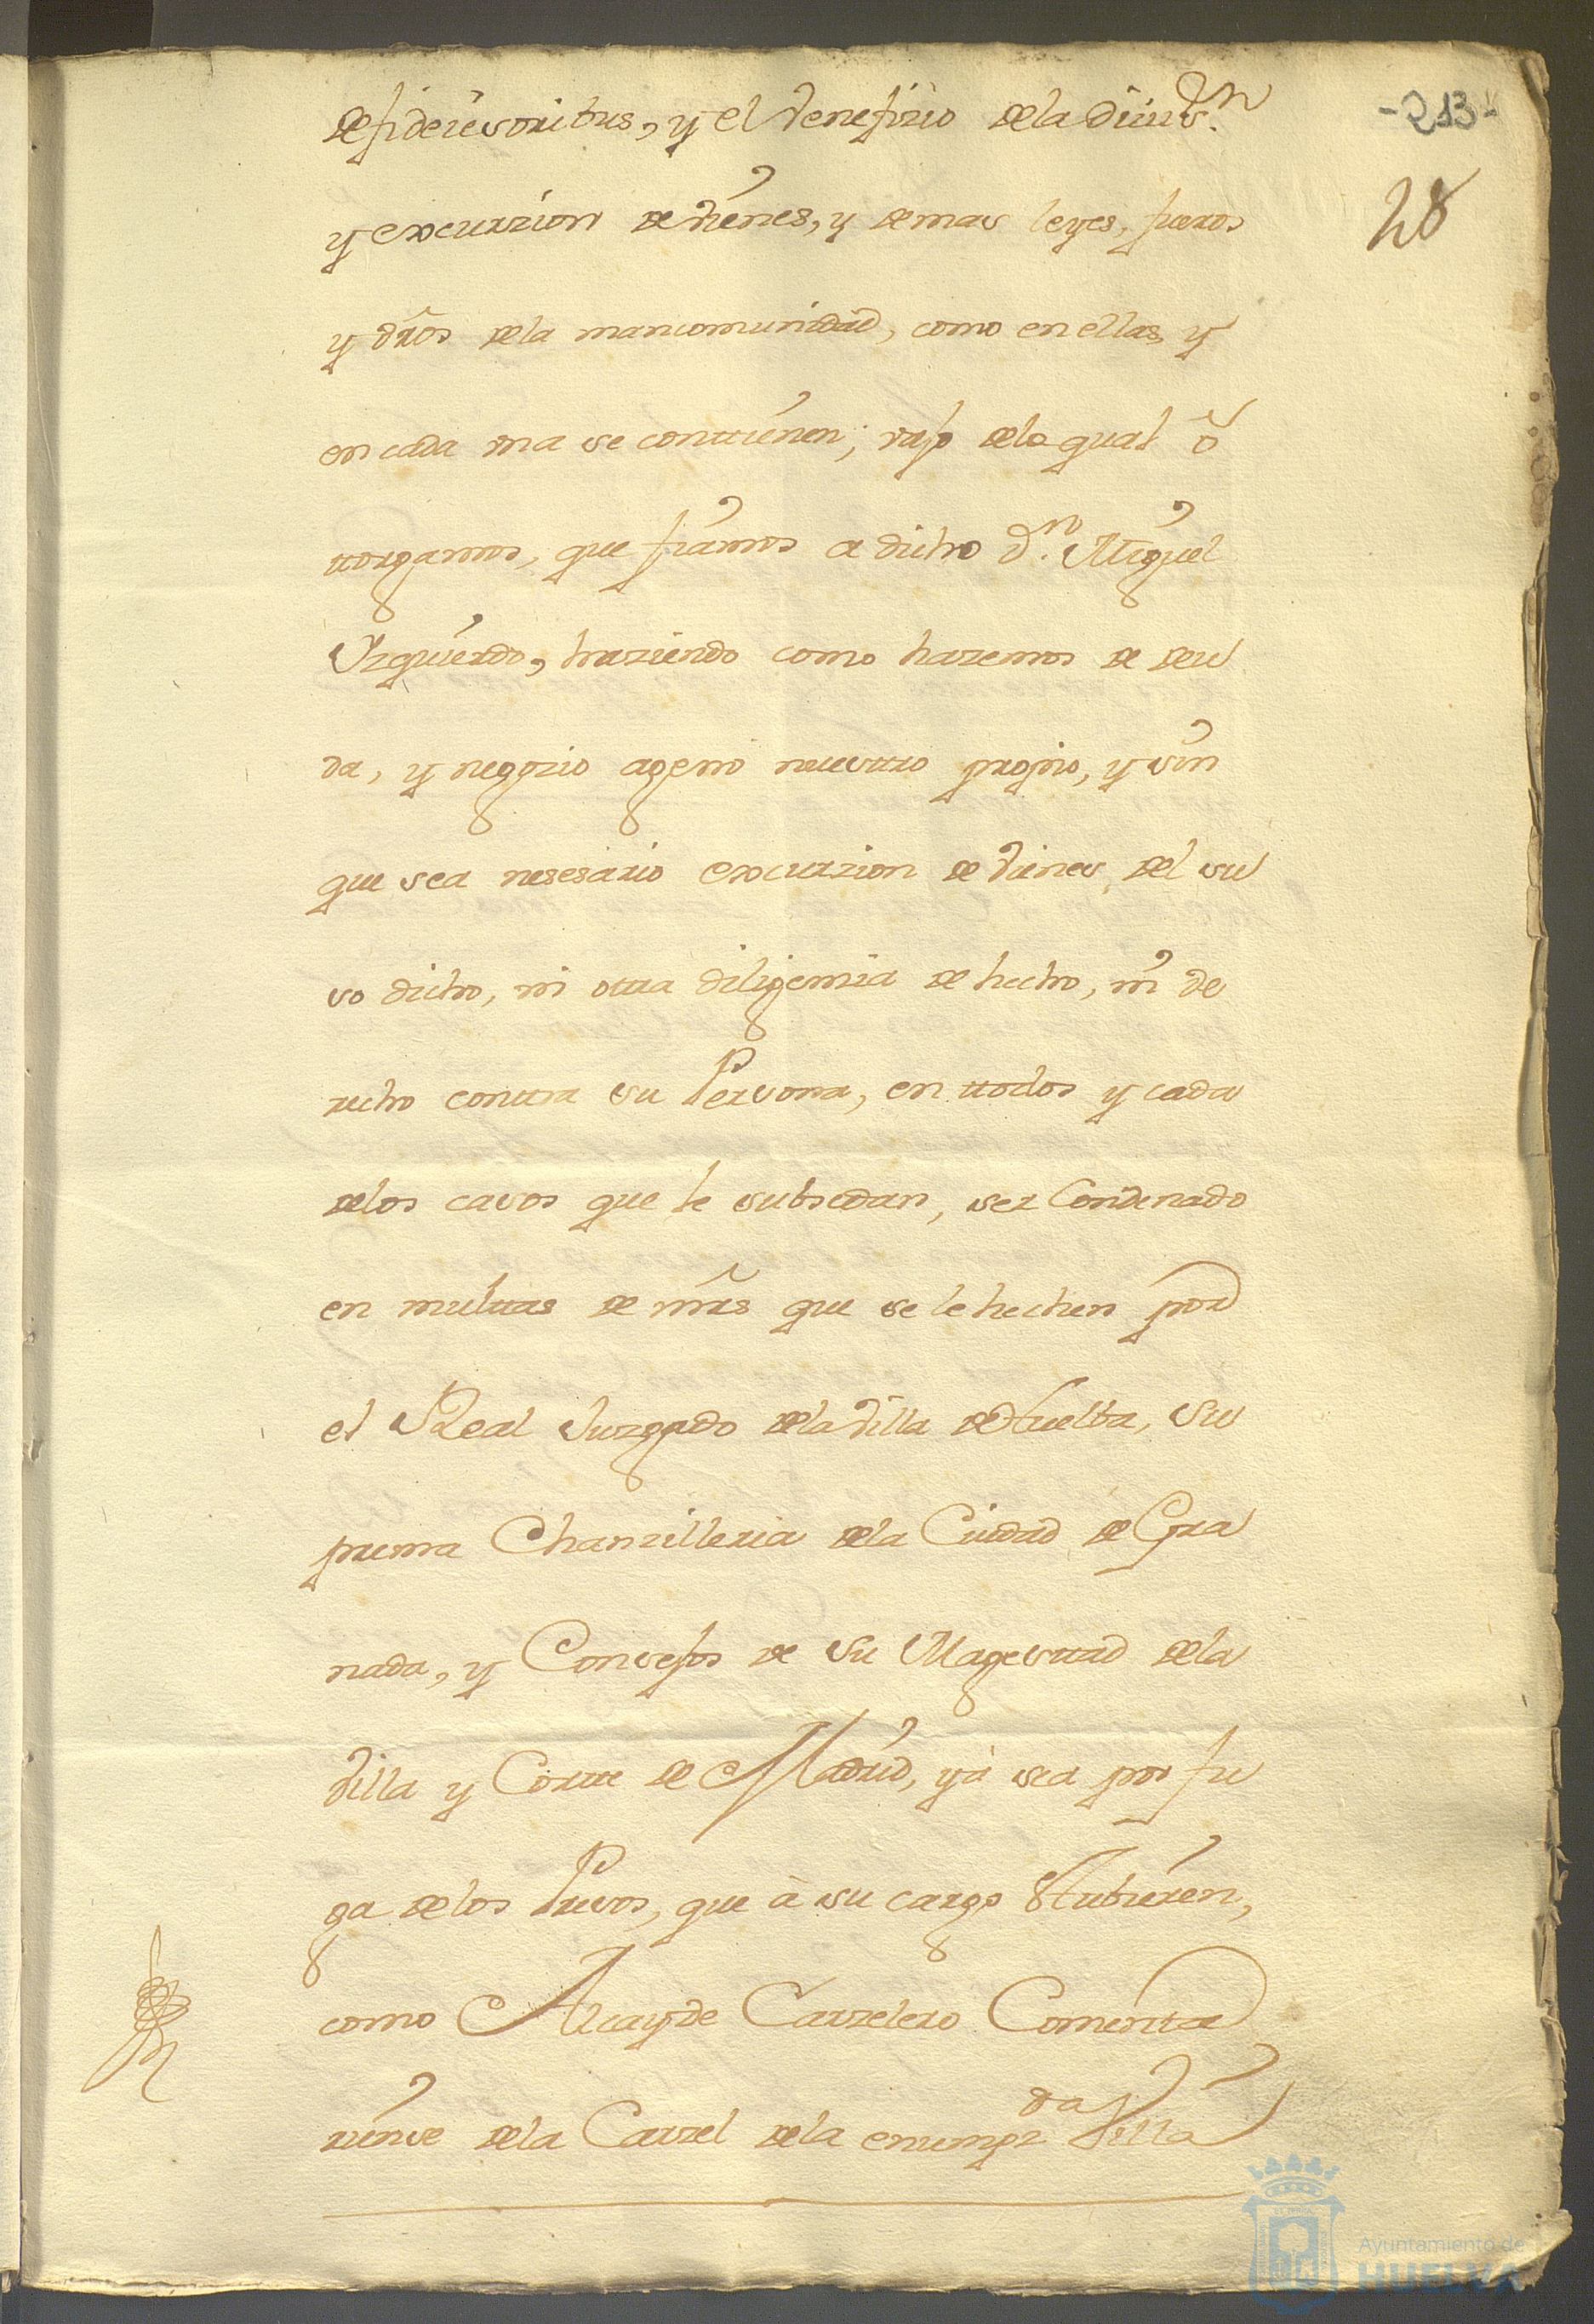 de fidejusoribus, y el venefizio dela divis.on
-213-
y excurzion de vienes, y demas leyes, fueros
28
y dros dela mancomunidad, como en ellas, y
en cada una se conttienen; vajo delo qual ô
ttorgamos, que fiamos a dicho D.n Miguel
Yzquierdo, haziendo como hazemos de deu
da, y negozio ageno nuesttro propio, y sin
que sea nesesario excurzion de vienes, del su
so dicho, ni otra diligenzia de hecho, ni de
recho conttra su Persona, en ttodos y cada
delos casos que le subsedan, ser Condenado
en multtas de mrs que se le hechen por
el Real Juzgado dela Villa de Huelba, Su
prema Chanzilleria dela Ciudad de Gra
nada, y Consejos de Su Magesttad dela
Villa y Cortte de Madrid, yà sea por fu
ga delos Presos, que à su cargo Hubieren,
como Alcayde Carzelero Comenta
riense dela Carzel dela enumpz.da Villa
Ayuntamiento de
HUELVA